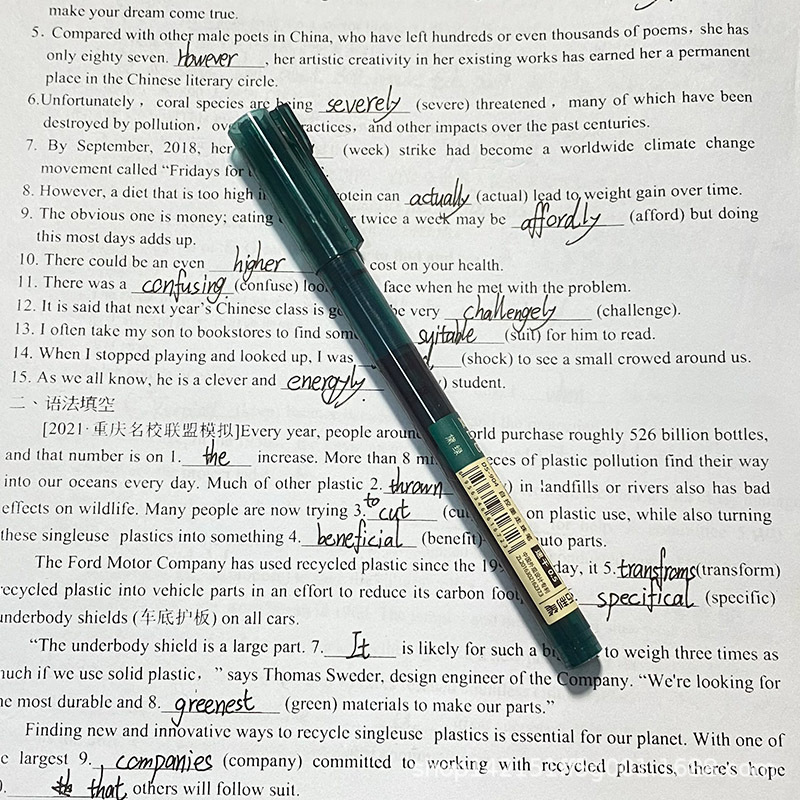 make your dream come true.
5. Compared with other male poets in China, who have left hundreds or even thousands of poems, she has
only eighty seven. However, her artistic creativity in her existing works has earned her a permanent
place in the Chinese literary circle.
6.Unfortunately, coral species are being severely (severe) threatened, many of which have been
destroyed by pollution, ractices, and other impacts over the past centuries.
7. By September, 2018, her (week) strike had become a worldwide climate change
movement called "Fridays for
8. However, a diet that is too high i rotein can actually (actual) lead to weight gain over time.
9. The obvious one is money; eating r twice a week may be affordly (afford) but doing
this most days adds up.
10. There could be an even higher cost on your health.
11. There was a confusing (confuse) loo face when he met with the problem.
12. It is said that next year's Chinese class is g be very challengely (challenge).
13. I often take my son to bookstores to find som suitable (suit) for him to read.
14. When I stopped playing and looked up, I was (shock) to see a small crowed around us.
15. As we all know, he is a clever and energyly ) student.
二、语法填空
[2021·重庆名校联盟模拟]Every year, people aroun orld purchase roughly 526 billion bottles,
and that number is on 1. the increase. More than 8 mi eces of plastic pollution find their way
into our oceans every day. Much of other plastic 2. thrown ) in landfills or rivers also has bad
effects on wildlife. Many people are now trying 3. to cut (cu on plastic use, while also turning
these singleuse plastics into something 4. beneficial (benefit) uto parts.
The Ford Motor Company has used recycled plastic since the 19 day, it 5. transfroms(transform)
recycled plastic into vehicle parts in an effort to reduce its carbon foot specifical (specific)
underbody shields (车底护板) on all cars.
"The underbody shield is a large part. 7. It is likely for such a bi to weigh three times as
much if we use solid plastic," says Thomas Sweder, design engineer of the Company. "We're looking for
he most durable and 8. greenest (green) materials to make our parts."
Finding new and innovative ways to recycle singleuse plastics is essential for our planet. With one of
e largest 9. companies (company) committed to working with recycled plastics, there's hope
that others will follow suit.
黛绿
速干 0.5